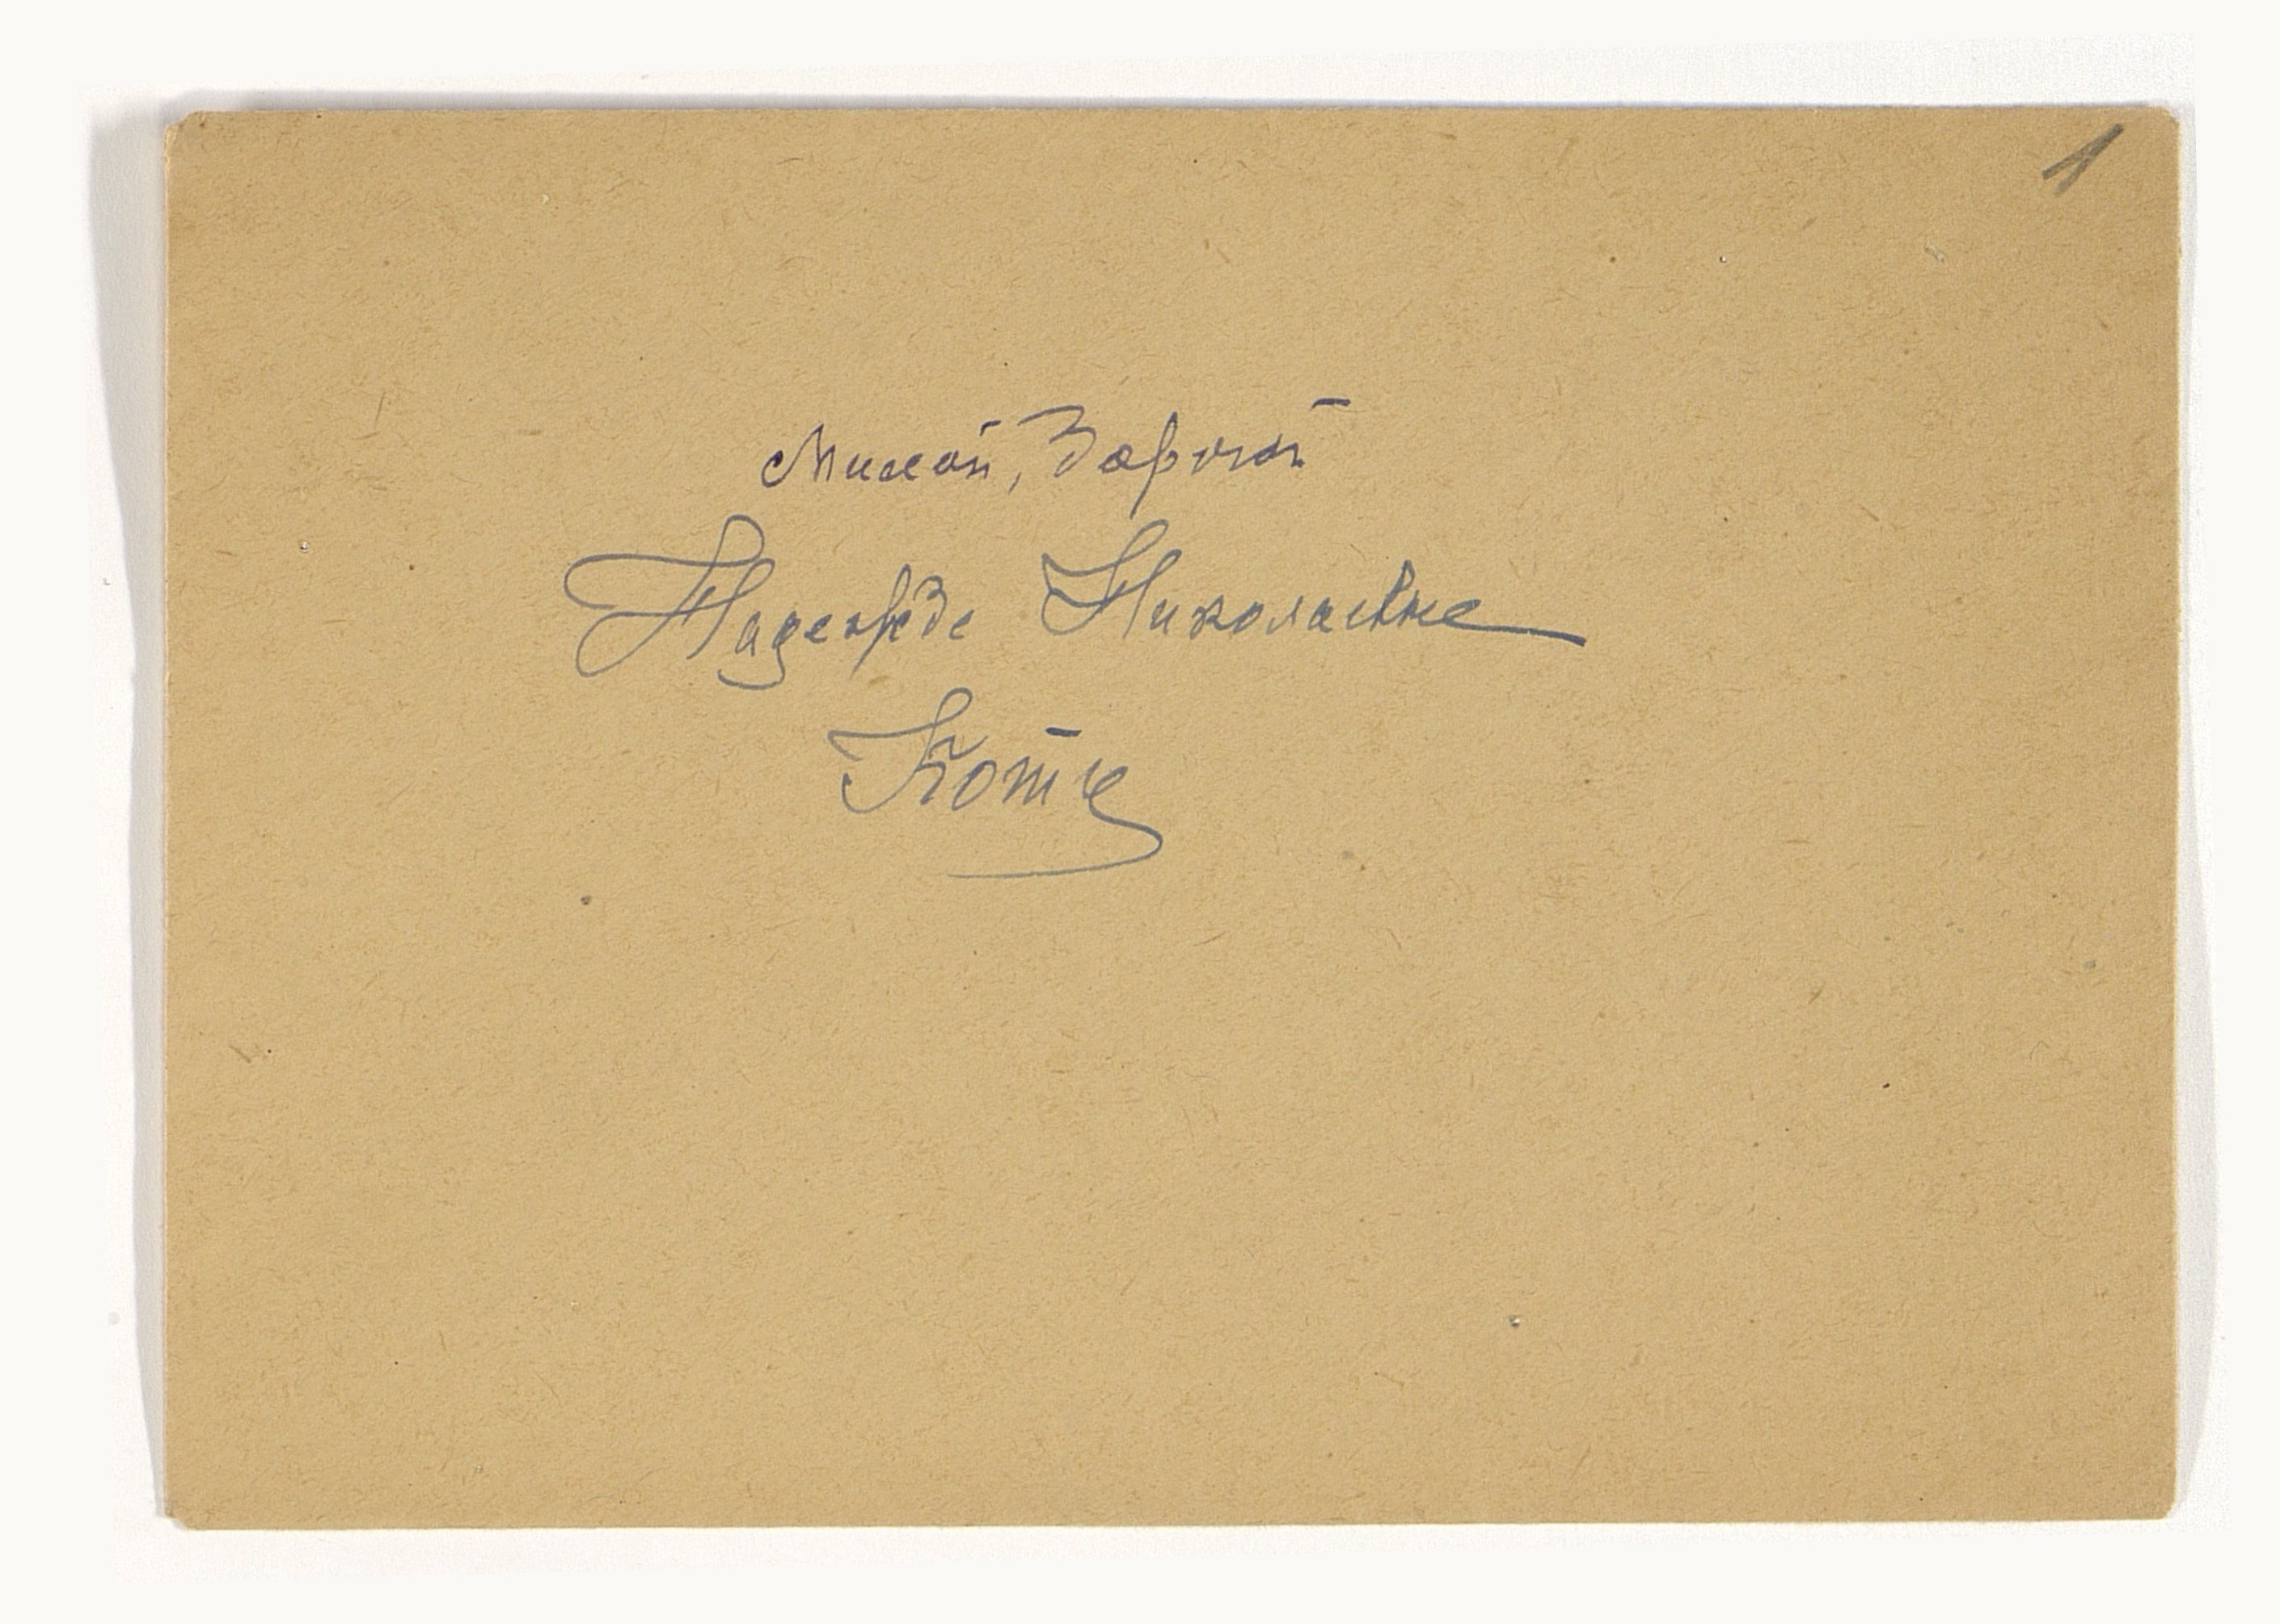 1
Милой, Дорогой
Надежде Николаевне